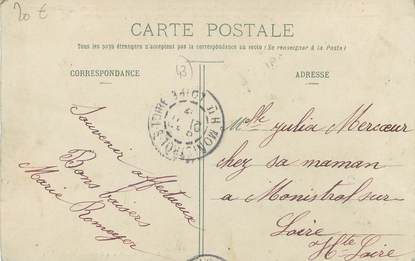 20 €
CARTE POSTALE
Tous les pays étrangers n'acceptent pas la correspondance au recto (Se renseigner à la Poste)
CORRESPONDANCE
ADRESSE
13
Souvenir affectueux
Bons baisers
Marie Romeyer
Mlle Julia Mercœur
chez sa maman
a Monistrol sur
Loire
Hte Loire